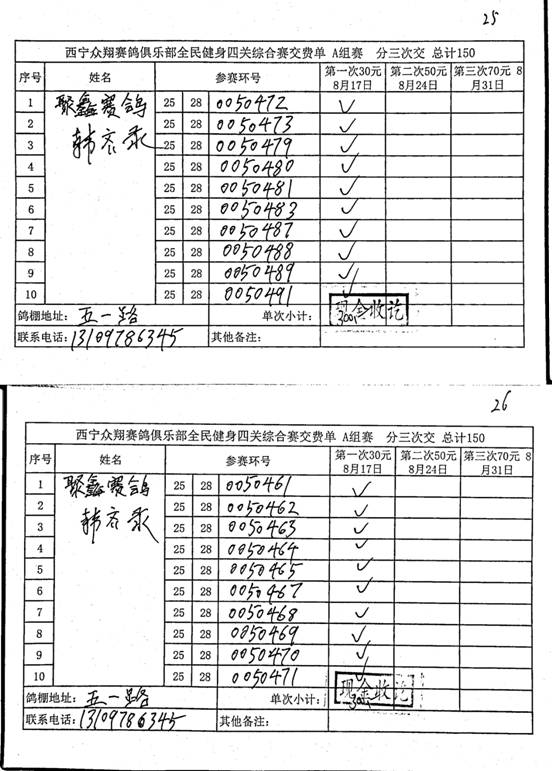 25
西宁众翔赛鸽俱乐部全民健身四关综合赛交费单 A组赛 分三次交 总计150
序号 姓名 参赛环号 第一次30元 8月17日 第二次50元 8月24日 第三次70元 8月31日
1 聚鑫赛鸽 25 28 0050472 ✓
2 25 28 0050473
3 韩 25 28 0050479 ✓
4 25 28 0050480 ✓
5 25 28 0050481 ✓
6 25 28 0050483 ✓
7 25 28 0050487 ✓
8 25 28 0050488 ✓
9 25 28 0050489 ✓
10 25 28 0050491 ✓
鸽棚地址: 五一路 单次小计: 300 现金收讫
联系电话: 13109786345 其他备注:
26
西宁众翔赛鸽俱乐部全民健身四关综合赛交费单 A组赛 分三次交 总计150
序号 姓名 参赛环号 第一次30元 8月17日 第二次50元 8月24日 第三次70元 8月31日
1 聚鑫赛鸽 25 28 0050461 ✓
2 25 28 0050462 ✓
3 韩 25 28 0050463 ✓
4 25 28 0050464 ✓
5 25 28 0050465 ✓
6 25 28 0050467 ✓
7 25 28 0050468 ✓
8 25 28 0050469 ✓
9 25 28 0050470 ✓
10 25 28 0050471 ✓
鸽棚地址: 五一路 单次小计: 300 现金收讫
联系电话: 13109786345 其他备注: